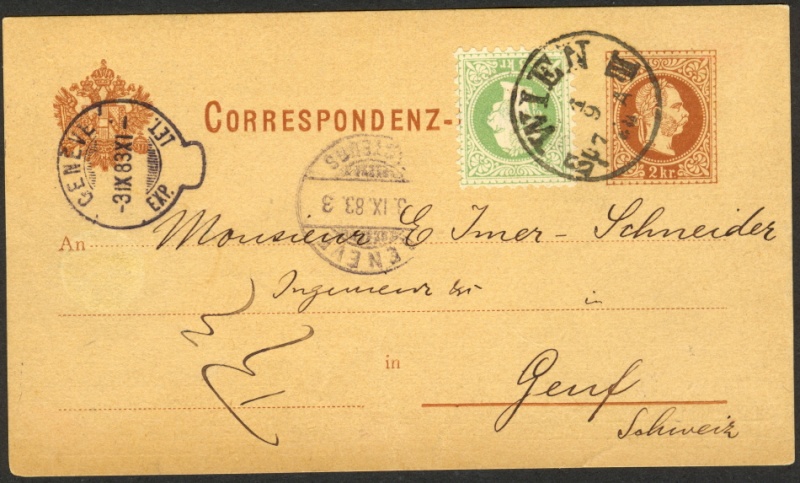 CORRESPONDENZ-
kr.
WIEN
1
9
2 kr.
GENEVE
-3IX83XI-
LET. EXP.
3.IX.83.3
An Monsieur E Imer-Schneider
Ingenieur
in
in Genf
Schweiz